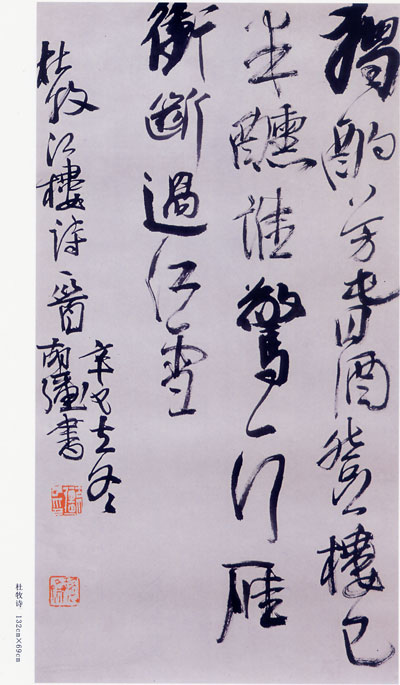 獨酌芳春酒登樓已
半醺誰驚一行雁
衝斷過江雲
杜牧江樓詩一首
辛巳立冬
南疆書
杜牧诗 132cm×69cm